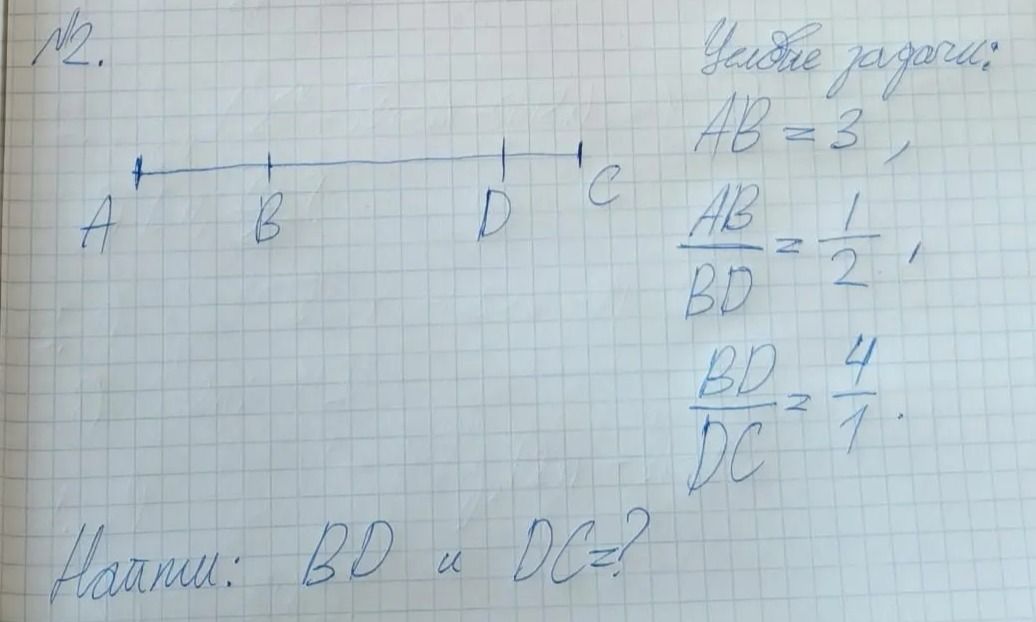 №2.
Условие задачи:
AB = 3,
A B D C
AB/BD = 1/2,
BD/DC = 4/1.
Найти: BD и DC=?